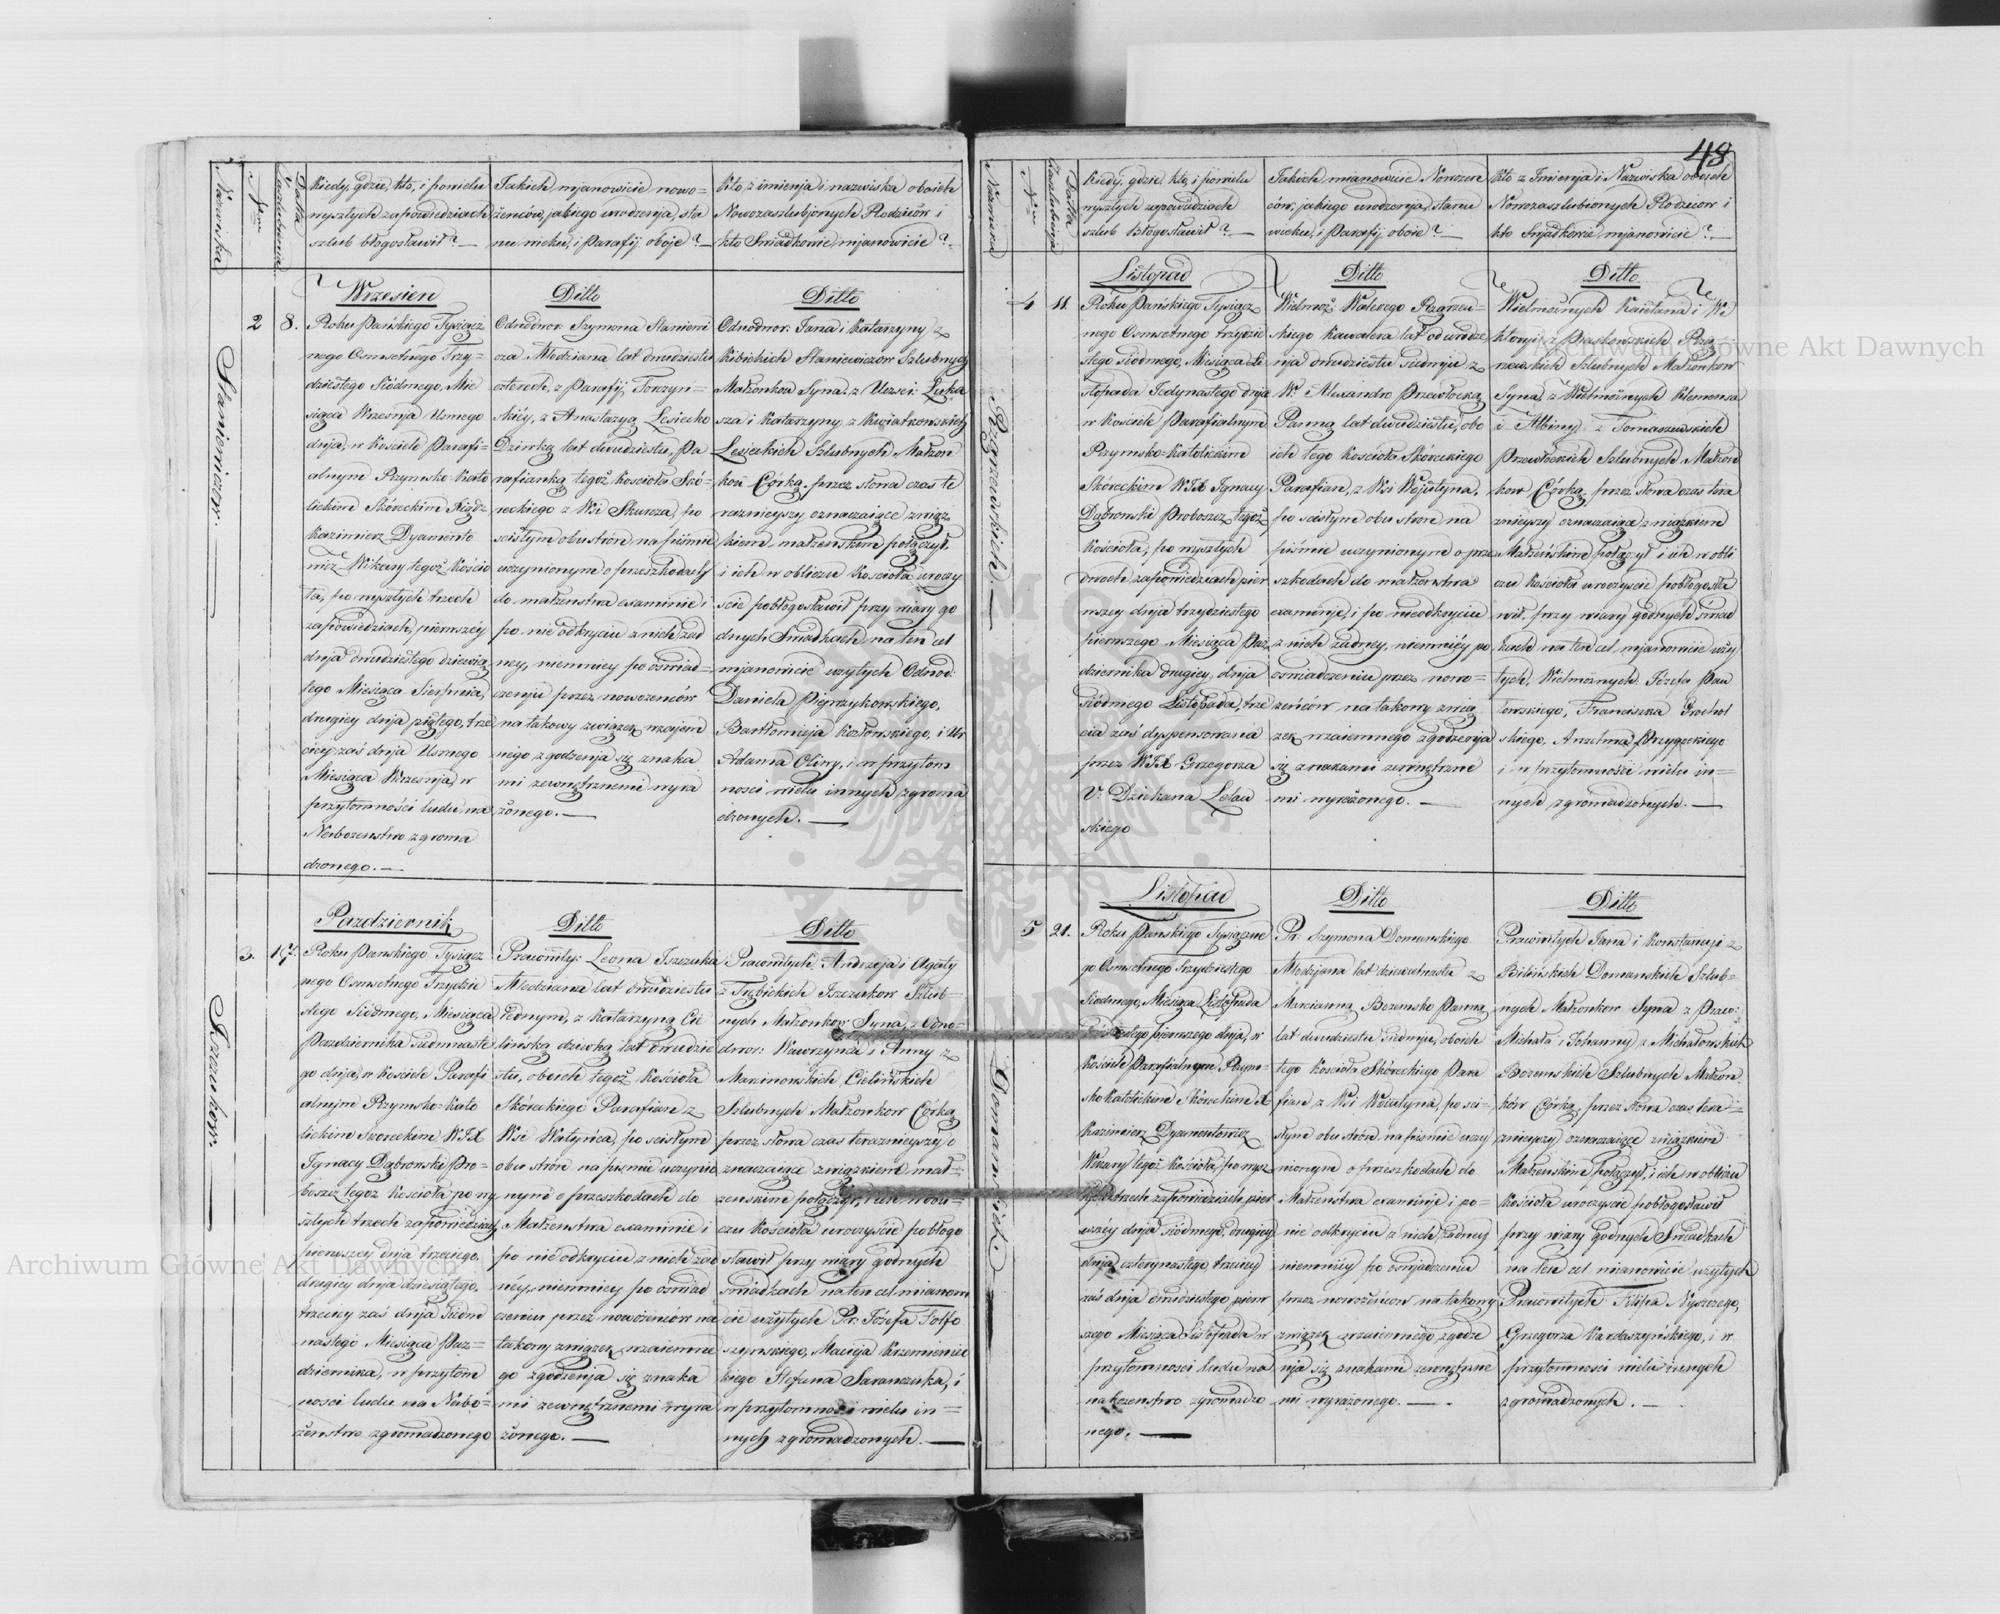 48
Nazwiska
Nr
Datta Zaszlubienia
Kiedy, gdzie, kto, i po wielu
wyszłych zapowiedziach
szlub błogosławił? —
Jakich mjanowicie nowo=
żeńców, jakiego urodzenja, sta
nu wieku, i Parafij oboje? —
Kto, z imienja i nazwiska oboich
Nowozaszlubjonych Rodziców i
kto Swiadkowie mjanowicie? —
Staniewiczow. —
2 8.
Wrzesien
Roku Pańskiego Tysiącz
nego Osmsetnego Trzy=
dziestego Siódmego, Mie
siąca Wrzesnja Usmego
dnja, w Kosciele Parafi=
alnym Rzymsko Kato
lickim Skóreckim Xiądz
Kazimierz Dyamento
wicz Wikary tegoż Koscio
ła, po wyszłych trzech
zapowiedziach, pierwszéy
dnja dwudziestego dziewią
tego Miesiąca Sierpnia,
drugiey dnja piątego, trze
ciey zaś dnja Usmego
Miesiąca Wrzesnja, w
przytomności ludu na
Nabozenstwo zgroma
dzonego. —
Ditto
Odnodwor. Szymona Staniewi
cza Młodziana lat dwadziescia
czterech, z Parafij Torczyn=
skiéy, z Anastazyą Lesiecko
Dziwką lat dwudziestu, Pa
rafianką tegoż Koscioła Skó=
reckiego z Wsi Skurcza, po
scisłym obu strón na piśmie
uczynionym o przeszkodach
do małzenstwa examinie i
po nie odkryciu z nich żad
ney, niemniey po oswiad=
czenju przez nowozencòw
na takowy związek wzajem
nego zgodzenja się znaka
mi zewnętrznemi wyra
żonego. —
Ditto
Odnodwor: Jana i Katarzyny z
Kibickich Staniewiczow Szlubnych
Małżonkow Syna, z Uczsci: Łuka
sza i Katarzyny z Kwiatkowskich
Lesieckich Szlubnych Małżon
kow Córką. przez słowa czas te
razniejszy oznaczaiące związ
kiem małzenskim połączył.
i ich w obliczu Kosciola uroczy
ście pobłogosławił przy wiary go
dnych Swiadkach na ten cel
mjanowicie użytych Odnod:
Daniela Piętrzykowskiego,
Bartłomieja Kozłowskiego, i Ur
Adama Oliny, i w przytom
nosci wielu innych zgroma
dzonych. —
Iszczukow. —
3. 17.
Pazdziernik
Roku Pańskiego Tysiącz
nego Osmsetnego Trzydzie
stego Siódmego, Miesiąca
Pazdziernika siedmnaste
go dnja, w Kosciele Parafi
alnym Rzymsko-Kato
lickim Skoreckim WJX
Ignacy Dąbrowski Pro=
boszcz tegoz Koscioła po wy
szłych trzech zapowiedziach,
pierwszey dnja trzeciego,
drugiey dnja dziesiątego,
trzeciey zaś dnja siedm
nastego Miesiąca Paz=
dziernika, w przytom
nosci ludu na Nabo=
żenstwo zgromadzonego
Ditto
Pracowity: Leona Iszczuka
Młodziana lat dwudziestu
Jednym, z Katarzyną Cie
linską dziwką lat dwudzie
stu, oboich tegoż Koscioła
Skóreckiego Parafian z
Wsi Wołyńca, po scisłym
obu strón na pismie uczynio
nym o przeszkodach do
Małzenstwa examinie i
po nie odkryciu z nich zad
néy, niemniey po oswiad
czeniu przez nowozencòw na
takowy związek wzaiemne
go zgodzenja się znaka
mi zewnętrznemi wyra
żonego. —
Ditto
Pracowitych Andrzeja i Agaty
z Trębickich Iszczukow Szlub=
nych Małzonkow Syna, z Odno=
dwor: Wawrzynca i Anny z
Marinowskich Cielińskich
Szlubnych Małzonkow Córką
przez słowa czas terazniejszy o
znaczaiące związkiem mał=
zenskim połączył, i ich w obli=
czu Kosciola uroczyscie pobłogo
sławił przy wiary godnych
swiadkach na ten cel mianowi
cie użytych Pr. Józefa Toffo
szynskiego, Macieja Krzemieniec
kiego Stefana Saranczuka, i
w przytomności wielu in=
nych zgromadzonych. —
Nazwiska
Nr
Datta Zaszlubienja
Kiedy, gdzie, kto, i po wielu
wyszłych zapowiedziach
szlub błogosławił? —
Jakich mianowicie Nowozen
ców, jakiego urodzenja, stanu
wieku, i Parafij oboie? —
Kto z Imienja i Nazwiska oboich
Nowozaszlubionych Rodzicow i
kto Swjadkowie mjanowicie? —
Rzązewskich. —
4 11
Listopad
Roku Pańskiego Tysiącz
nego Osmsetnego trzydzie
stego siódmego, Miesiąca Li
stopada Jedynastego dnja
w Kosciele Parafialnym
Rzymsko-Katolickim
Skóreckim WJX Ignacy
Dąbrowski Proboszcz tegoż
Koscioła, po wyszłych
dwóch zapowiedziach pier
wszey dnja trzydziestego
pierwszego Miesiąca Paź
dziernika drugiey, dnja
siódmego Listopada, trze
cia zaś dyspensowana
przez WJX Grzegorza
V: Dziekana Lelau
skiego
Ditto
Wielmoż: Walerego Rzązew
skiego Kawalera lat od urodze
nja dwudziestu siedmju z
W. Alexandrą Przewłocką
Panną lat dwudziestu, obo
ich tego Kosciola Skóreckiego
Parafian, z Wsi Wojstyna,
po scisłym obu stron na
piśmie uczynionym o prze
szkodach do małzenstwa
examinje, i po nieodkryciu
z nich żadney, niemniéy po
oswiadczeniu przez nowo=
żeńców na takowy zwią
zek wzaiemnego zgodzenja
się znakami zewnętrzne
mi wyrażonego. —
Ditto
Wielmożnych Kaietana i Wi
ktoryi z Paszkowskich Rzą
zewskich Szlubnych Małzonkow
Syna, z Wielmożnych Klemensa
i Albiny z Tomaszewskich
Przewłockich Szlubnych Małzon
kow Córką, przez słowa czas tera
zniejszy oznaczaiące związkiem
Małzeńskim połączył i ich w obli
czu Koscioła uroczyscie pobłogosła
wił, przy wiary godnych swiad
kach na ten cel mjanowicie uży
tych, Wielmożnych: Józefa Paw
łowskiego, Franciszka Grochol
skiego, Anzelma Przygockiego
i w przytomności wielu in=
nych zgromadzonych. —
Domanskich. —
5 21.
Listopad
Roku Pańskiego Tysiączne
go Osmsetnego Trzydziestego
Siodmego, Miesiąca Listopada
dwudziestego pierwszego dnja, w
Kosciele Parafialnym Rzym=
sko Katolickim Skóreckim X
Kazimierz Dyamentowicz
Wikary tegoż Kosciola, po wysz
łych trzech zapowiedziach, pier
wszéy dnja siódmego, drugiey
dnja czternastego, trzeciey
zaś dnja dwudziestego pierw
szego Miesiąca Listopada w
przytomnosci ludu na
nabozenstwo zgromadzo
nego. —
Ditto
Pr. Szymona Domanskiego
Młodzjana lat dziewietnastu z
Marcianną Bozemsko Panną
lat dwudziestu siedmju, oboich
tego Kosciola Skóreckiego Para
fian z Wsi Wołstyna, po sci=
słym obu strón na piśmie uczy
nionym o przeszkodach do
Małzenstwa examinje i po=
nie odkryciu z nich żadney
niemniéy po oswjadczeniu
przez nowożeńcow na takowy
związek wzaiemnego zgodze
nja się znakami zewnętrzne
mi wyrażonego. —
Ditto
Pracowitych Jana i Konstancyi z
Bilińskich Domanskich Szlub=
nych Małzonkow Syna z Praco:
Michała i Johanny z Michałowskich
Bozemskich Szlubnych Małzon
ków Córką, przez słowa czas tera=
zniejszy oznaczaiące związkiem
Małzenskim połączył, i ich w obliczu
Koscioła uroczyscie pobłogosławił
przy wiary godnych Swiadkach
na ten cel mianowicie użytych
Pracowitych: Filipa Nyszczego,
Grzegorza Kardaszyńskiego, i w
przytomności wielu innych
zgromadzonych. —
Archiwum Główne Akt Dawnych
Archiwum Główne Akt Dawnych